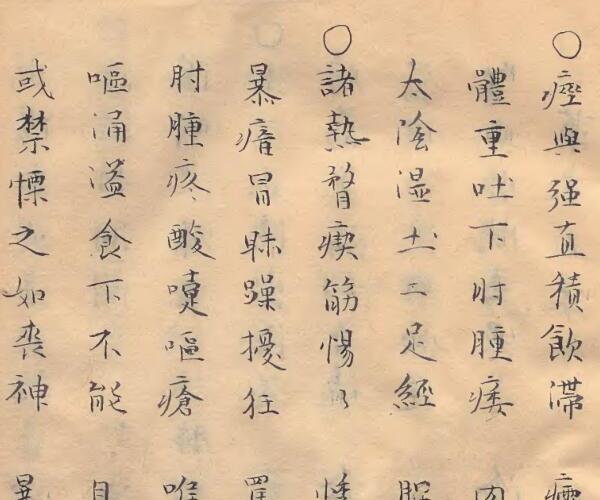 ○痙與强直積飲滯
體重吐下肘腫痿
太陰湿土二足經
○諸熱瞀瘈筋惕々
暴瘖冒昧躁擾狂
肘腫疼酸嚏嘔瘡
嘔涌溢食下不能
或禁慄之如丧神